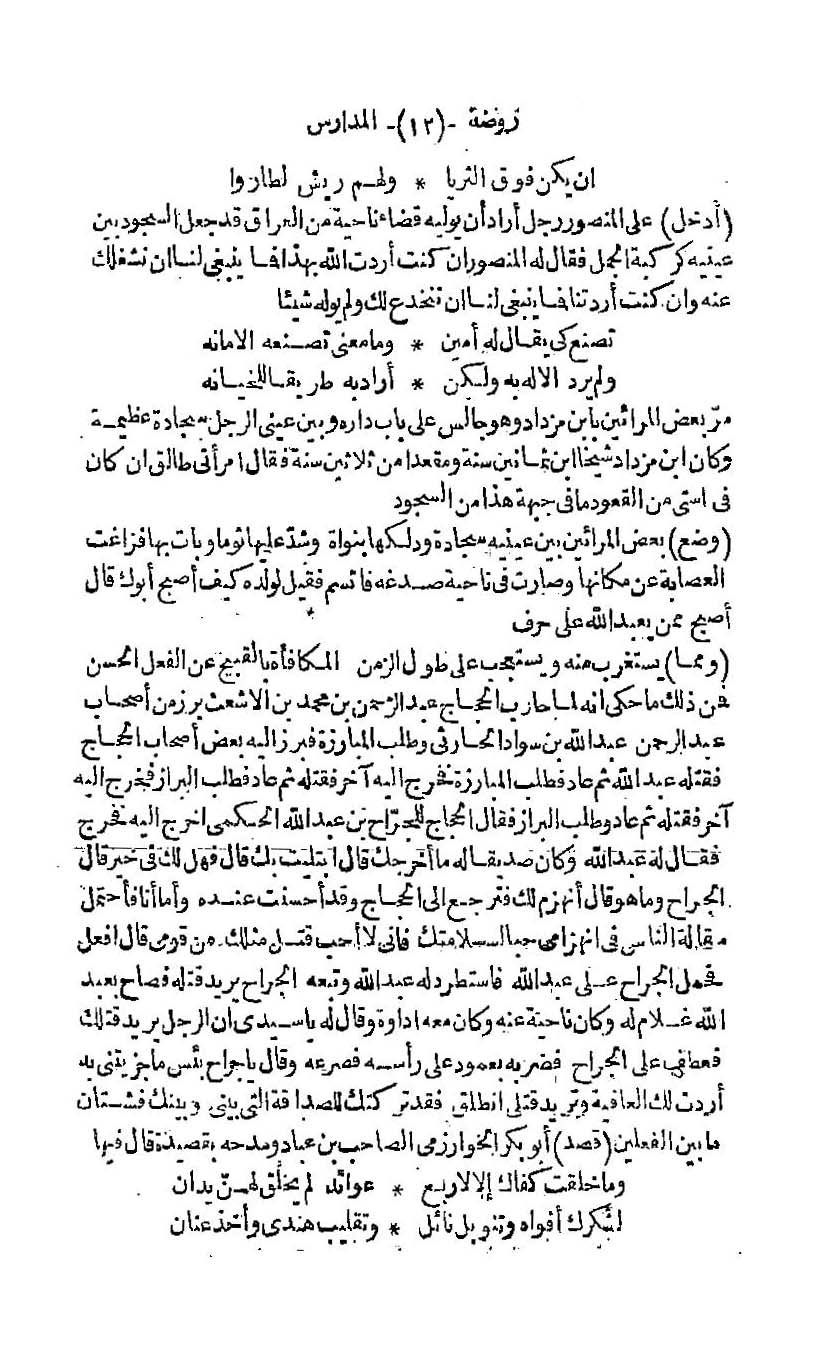 روضة -(١٢)- المدارس
ان يكن فوق الثريا * ولهم ريش لطاروا
(أدخل) على المنصور رجل أراد أن يوليه قضاء ناحية من العراق قد جعل السجود بين
عينيه كركبة الجمل فقال له المنصور ان كنت أردت الله بهذا فما ينبغى لنا ان نشغلك
عنه وان كنت أردتنا فما ينبغى لنا ان ننخدع لك ولم يوله شيئا
تصنع كى يقال له أمين * وما معنى تصنعه الامانه
ولم يرد الاله به ولكن * أراد به طريقا للخيانه
مرّ بعض المرائين بابن مزداد وهو جالس على باب داره وبين عينى الرجل سجادة عظيمة
وكان ابن مزداد شيخا ابن ثمانين سنة ومقعدا من ثلاثين سنة فقال امرأتى طالق ان كان
فى استى من القعود ما فى جبهة هذا من السجود
(وضع) بعض المرائين بين عينيه سجادة ودلكها بنواة وشد عليها ثوما وبات بها فزاغت
العصابة عن مكانها وصارت فى ناحية صدغه فاتسم فقيل لولده كيف أصبح أبوك قال
أصبح ممن يعبد الله على حرف
(ومما) يستغرب منه ويستعجب على طول الزمن المكافأة بالقبيح عن الفعل الحسن
فمن ذلك ما حكى انه لما حارب الحجاج عبد الرحمن بن محمد بن الاشعث برز من أصحاب
عبد الرحمن عبد الله بن سواد الحارثى وطلب المبارزة فبرز اليه بعض أصحاب الحجاج
فقتله عبد الله ثم عاد فطلب المبارزة فخرج اليه آخر فقتله ثم عاد فطلب البراز فخرج اليه
آخر فقتله ثم عاد وطلب البراز فقال الحجاج للجرّاح بن عبد الله الحكمى اخرج اليه فخرج
فقال له عبد الله وكان صديقا له ما أخرجك قال ابتليت بك قال فهل لك فى خير قال
الجراح وما هو قال أنهزم لك فترجع الى الحجاج وقد أحسنت عنده وأما أنا فأحتمل
مقالة الناس فى انهزامى حبا لسلامتك فانى لا أحب قتل مثلك من قومى قال افعل
فحمل الجراح على عبد الله فاستطرد له عبد الله وتبعه الجراح يريد قتله فصاح بعبد
الله غلام له وكان ناحية عنه وكان معه اداوة وقال له يا سيدى ان الرجل يريد قتلك
فعطف على الجراح فضربه بعمود على رأسه فصرعه وقال يا جراح بئس ما جزيتنى به
أردت لك العافية وتريد قتلى انطلق فقد تركتك للصداقة التى بينى وبينك فشتان
ما بين الفعلين (قصد) أبو بكر الخوارزمى الصاحب بن عباد ومدحه بقصيدة قال فيها
وما خلقت كفاك إلا لاربع * عوائد لم يخلق لهنّ يدان
لشكرك أفواه وتنويل نائل * وتقليب هندى وأخذ عنان